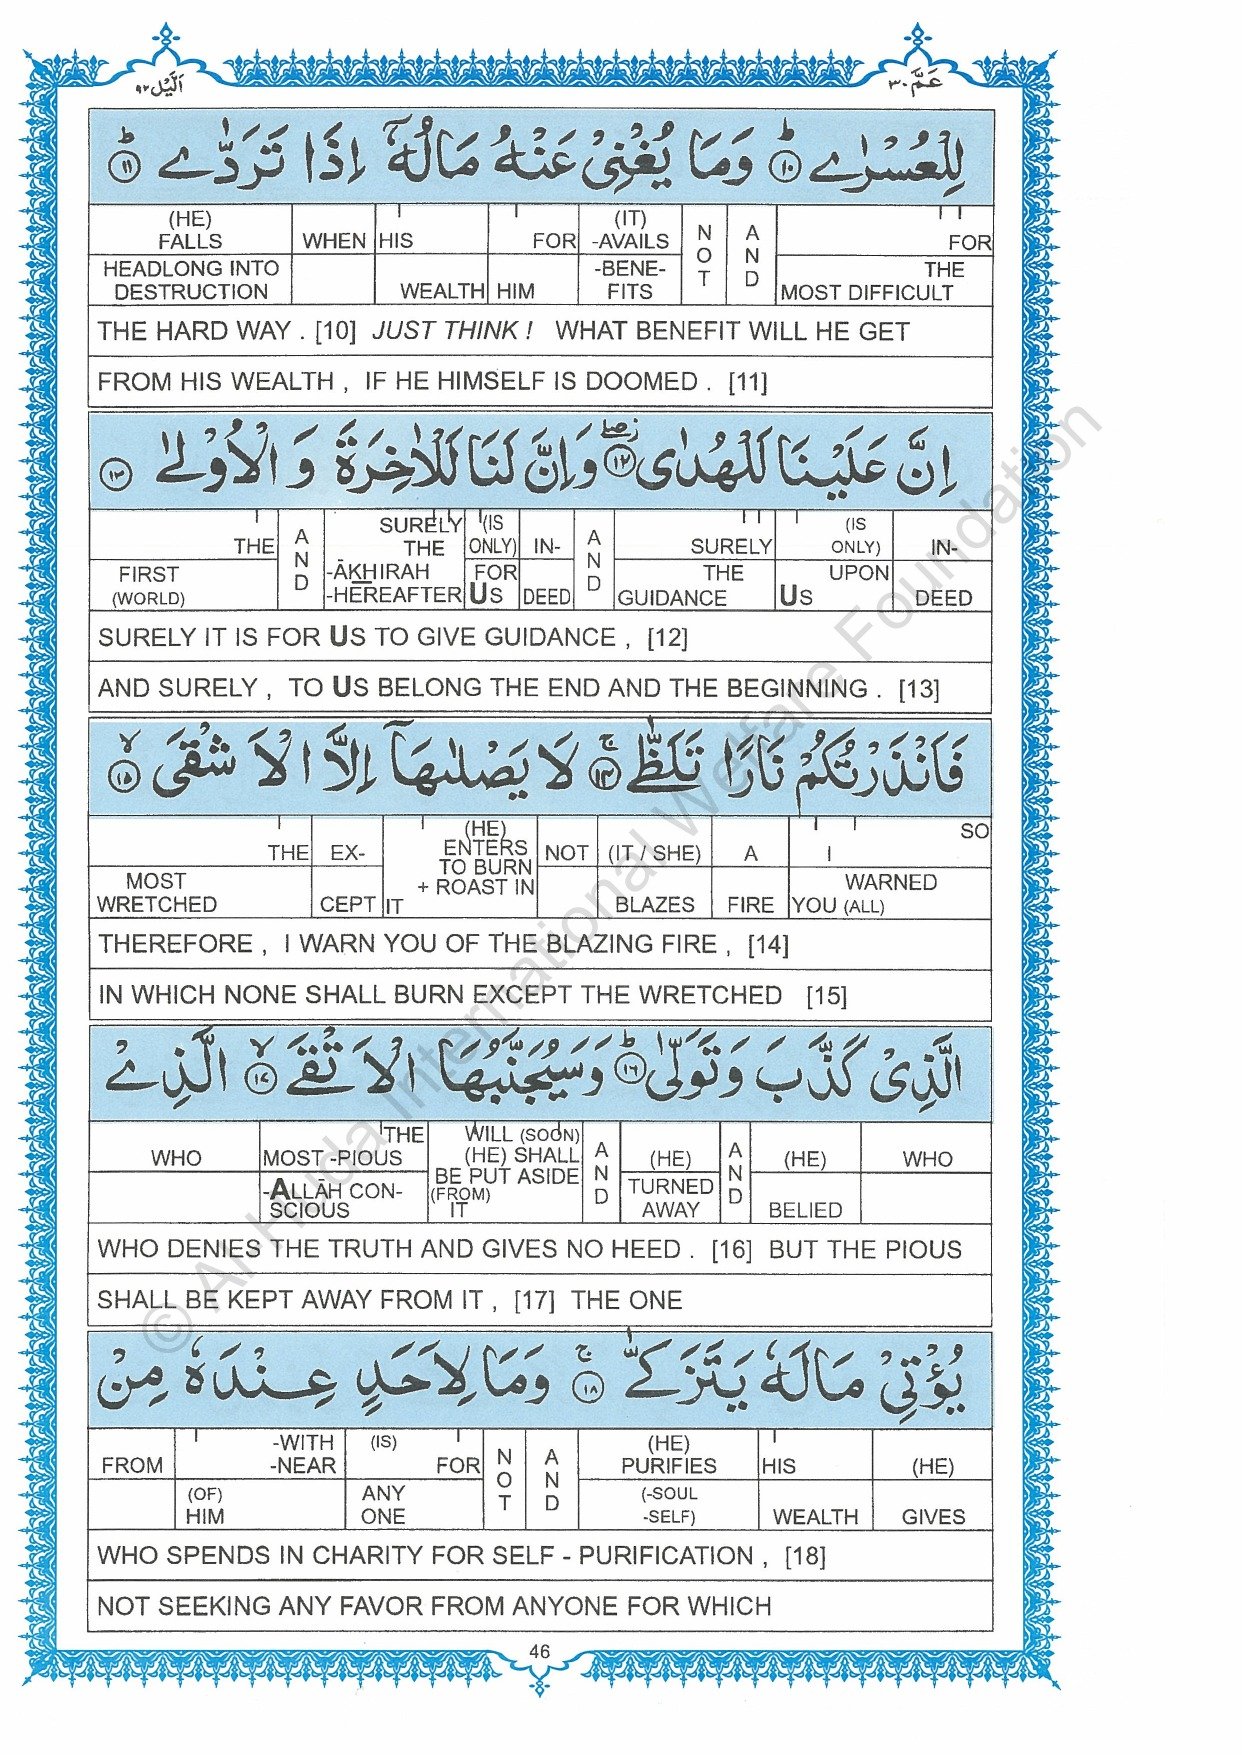 اَلَّيْل ٩٢ عَمَّ ٣٠
لِلْعُسْرٰى ؕ ١٠ وَمَا يُغْنِىْ عَنْهُ مَالُهٗۤ اِذَا تَرَدّٰى ؕ ١١
(HE) FALLS HEADLONG INTO DESTRUCTION | WHEN | HIS WEALTH | FOR HIM | (IT) -AVAILS -BENE-FITS | NOT | AND | FOR THE MOST DIFFICULT
THE HARD WAY . [10] JUST THINK ! WHAT BENEFIT WILL HE GET
FROM HIS WEALTH , IF HE HIMSELF IS DOOMED . [11]
اِنَّ عَلَيْنَا لَلْهُدٰى ۖ ١٢ وَاِنَّ لَنَا لَلْاٰخِرَةَ وَ الْاُوْلٰى ١٣
THE FIRST (WORLD) | AND | SURELY THE -ĀKHIRAH -HEREAFTER | (IS ONLY) FOR US | IN-DEED | AND | SURELY THE GUIDANCE | (IS ONLY) UPON US | IN-DEED
SURELY IT IS FOR US TO GIVE GUIDANCE , [12]
AND SURELY , TO US BELONG THE END AND THE BEGINNING . [13]
فَاَنْذَرْتُكُمْ نَارًا تَلَظّٰى ۚ ١٤ لَا يَصْلٰىهَاۤ اِلَّا الْاَشْقَى ۙ ١٥
THE MOST WRETCHED | EX-CEPT | (HE) ENTERS TO BURN + ROAST IN IT | NOT | (IT / SHE) BLAZES | A FIRE | SO I WARNED YOU (ALL)
THEREFORE , I WARN YOU OF THE BLAZING FIRE , [14]
IN WHICH NONE SHALL BURN EXCEPT THE WRETCHED [15]
الَّذِىْ كَذَّبَ وَتَوَلّٰى ؕ ١٦ وَسَيُجَنَّبُهَا الْاَتْقَى ۙ ١٧ الَّذِىْ
WHO | THE MOST -PIOUS -ALLĀH CON-SCIOUS | WILL (SOON) (HE) SHALL BE PUT ASIDE (FROM) IT | AND | (HE) TURNED AWAY | AND | (HE) BELIED | WHO
WHO DENIES THE TRUTH AND GIVES NO HEED . [16] BUT THE PIOUS
SHALL BE KEPT AWAY FROM IT , [17] THE ONE
يُؤْتِىْ مَالَهٗ يَتَزَكّٰى ۚ ١٨ وَمَا لِاَحَدٍ عِنْدَهٗ مِنْ
FROM | -WITH -NEAR (OF) HIM | (IS) FOR ANY ONE | NOT | AND | (HE) PURIFIES (-SOUL -SELF) | HIS WEALTH | (HE) GIVES
WHO SPENDS IN CHARITY FOR SELF - PURIFICATION , [18]
NOT SEEKING ANY FAVOR FROM ANYONE FOR WHICH
46
© Al-Huda International Welfare Foundation